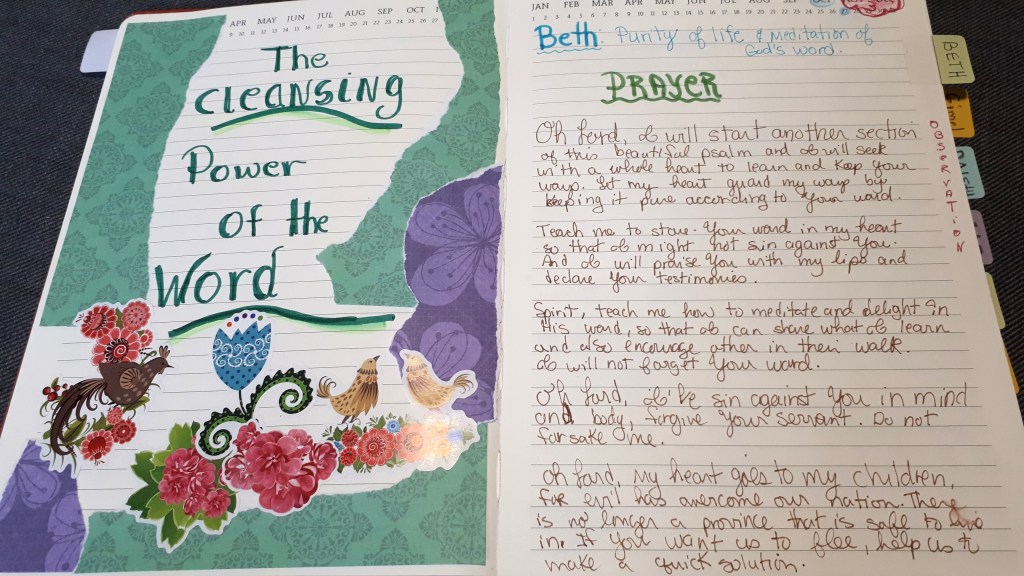 APR MAY JUN JUL AUG SEP OCT
The
CLEANSING
Power
of the
Word
JAN FEB MAR APR MAY JUN JUL AUG SEP
Beth: Purity of life & Meditation of
God's word.
PRAYER
Oh Lord, I will start another section
of this beautiful psalm and I will seek
with a whole heart to learn and keep your
ways. Let my heart guard my ways by
keeping it pure according to Your word.
Teach me to store Your word in my heart
so that I might not sin against You.
And I will praise You with my lips and
declare Your testimonies.
Spirit, teach me how to meditate and delight in
His word, so that I can share what I learn
and also encourage other in their walk.
I will not forget Your word.
Oh Lord, I've sin against You in mind
and body, forgive Your servant. Do not
forsake me.
Oh Lord, my heart goes to my children,
for evil has overcome our nation. There
is no longer a province that is safe to live
in. If You want us to flee, help us to
make a quick solution.
OBSERVATION
BETH
Gimel